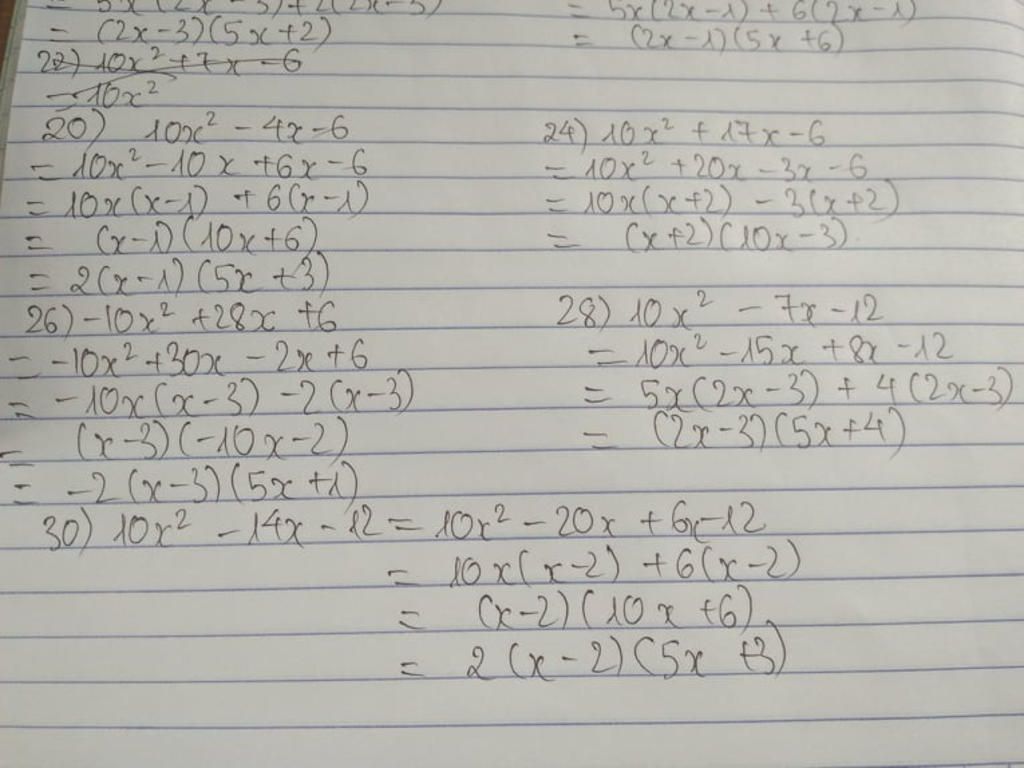 = 5x(2x-3)+2(2x-3)
= (2x-3)(5x+2)
= 5x(2x-1) + 6(2x-1)
= (2x-1)(5x+6)
22) 10x² + 7x - 6
= 10x²
20) 10x² - 4x - 6
= 10x² - 10x + 6x - 6
= 10x(x-1) + 6(x-1)
= (x-1)(10x+6)
= 2(x-1)(5x+3)
24) 10x² + 17x - 6
= 10x² + 20x - 3x - 6
= 10x(x+2) - 3(x+2)
= (x+2)(10x-3)
26) -10x² + 28x + 6
= -10x² + 30x - 2x + 6
= -10x(x-3) - 2(x-3)
= (x-3)(-10x-2)
= -2(x-3)(5x+1)
28) 10x² - 7x - 12
= 10x² - 15x + 8x - 12
= 5x(2x-3) + 4(2x-3)
= (2x-3)(5x+4)
30) 10x² - 14x - 12 = 10x² - 20x + 6x - 12
= 10x(x-2) + 6(x-2)
= (x-2)(10x+6)
= 2(x-2)(5x+3)